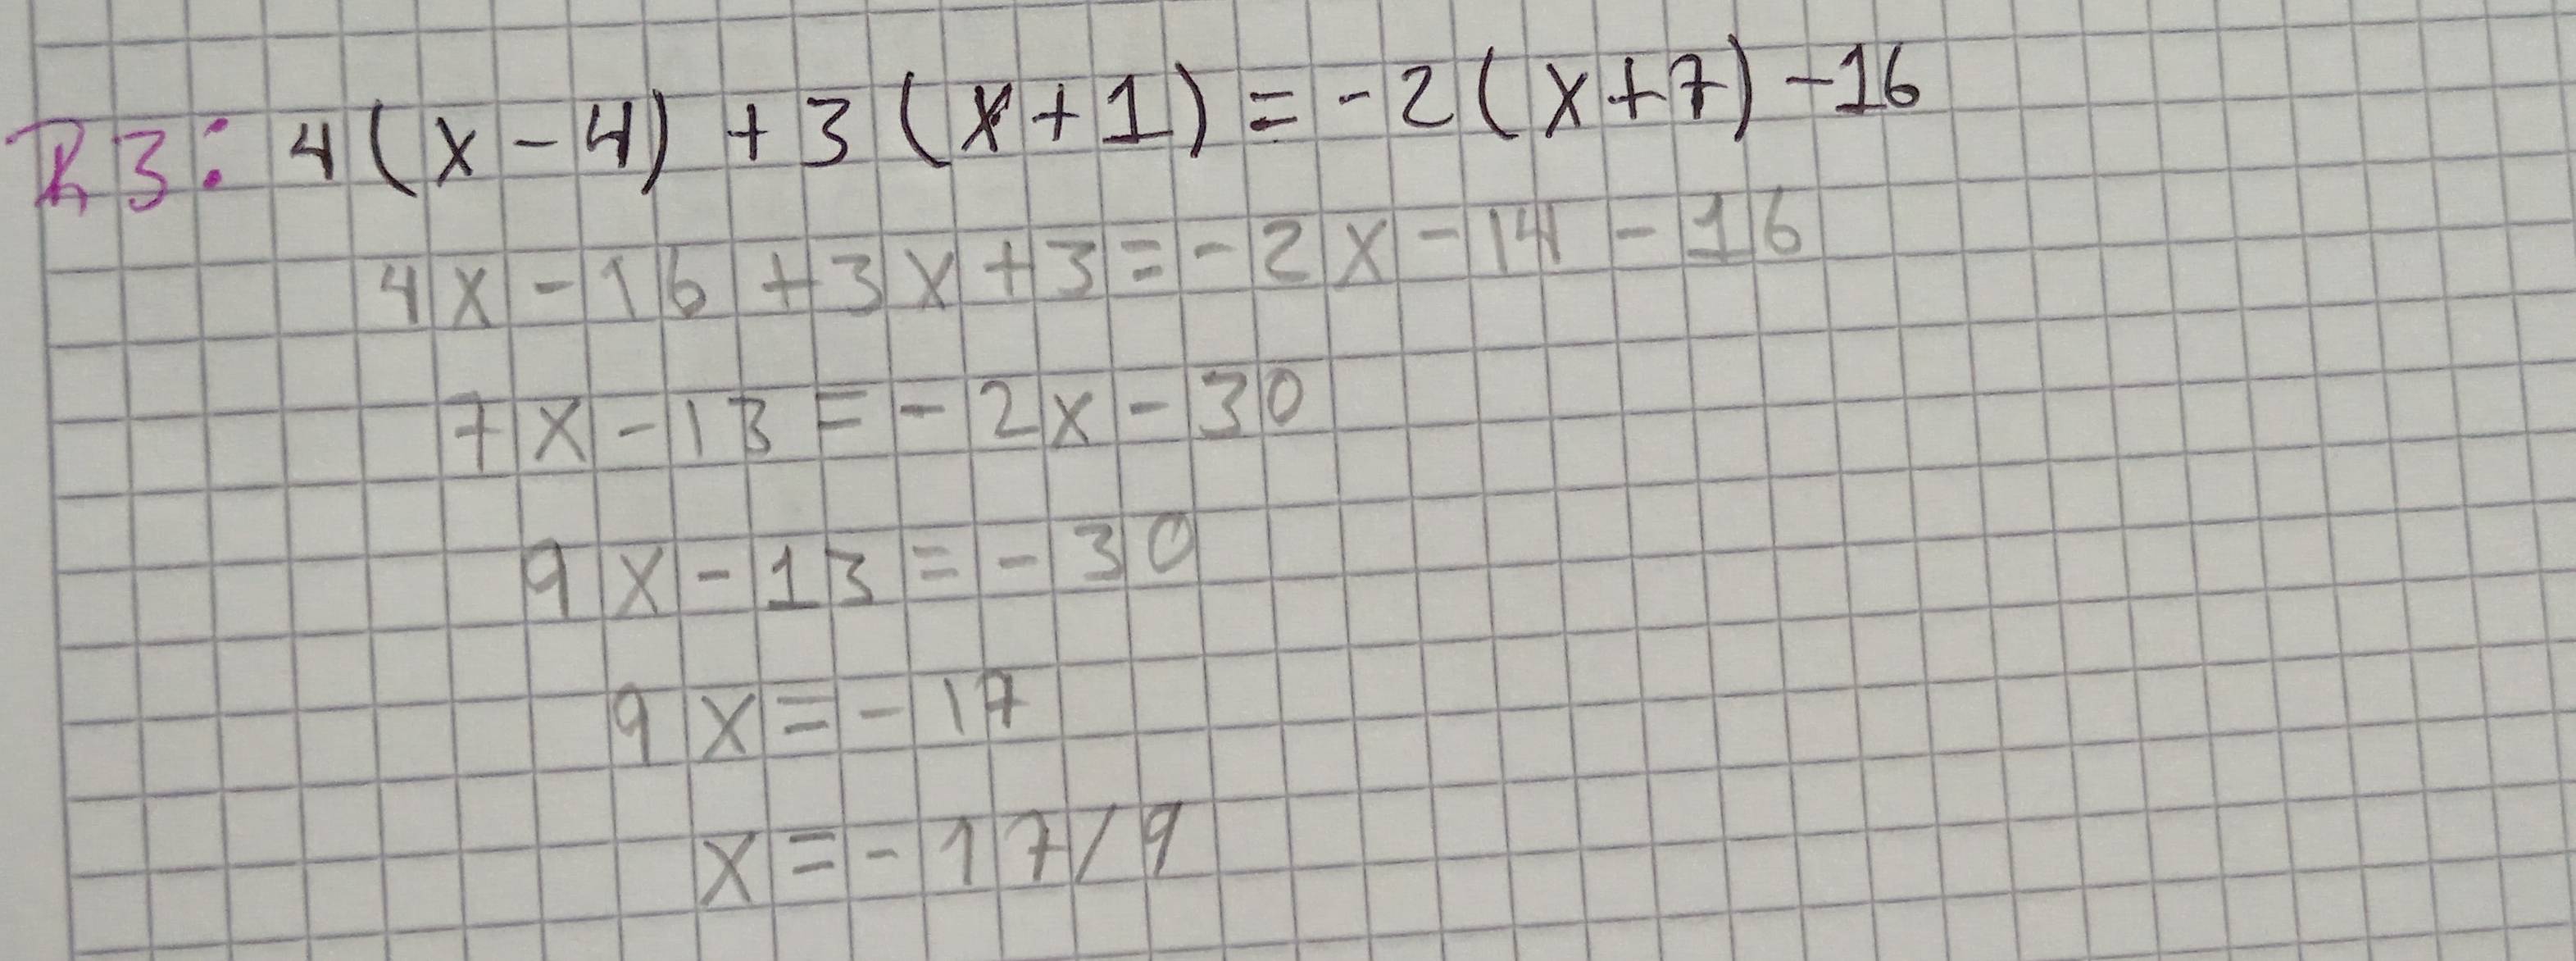 R3: 4(x-4)+3(x+1)=-2(x+7)-16
4x-16+3x+3=-2x-14-16
7x-13=-2x-30
9x-13=-30
9x=-17
x=-17/9